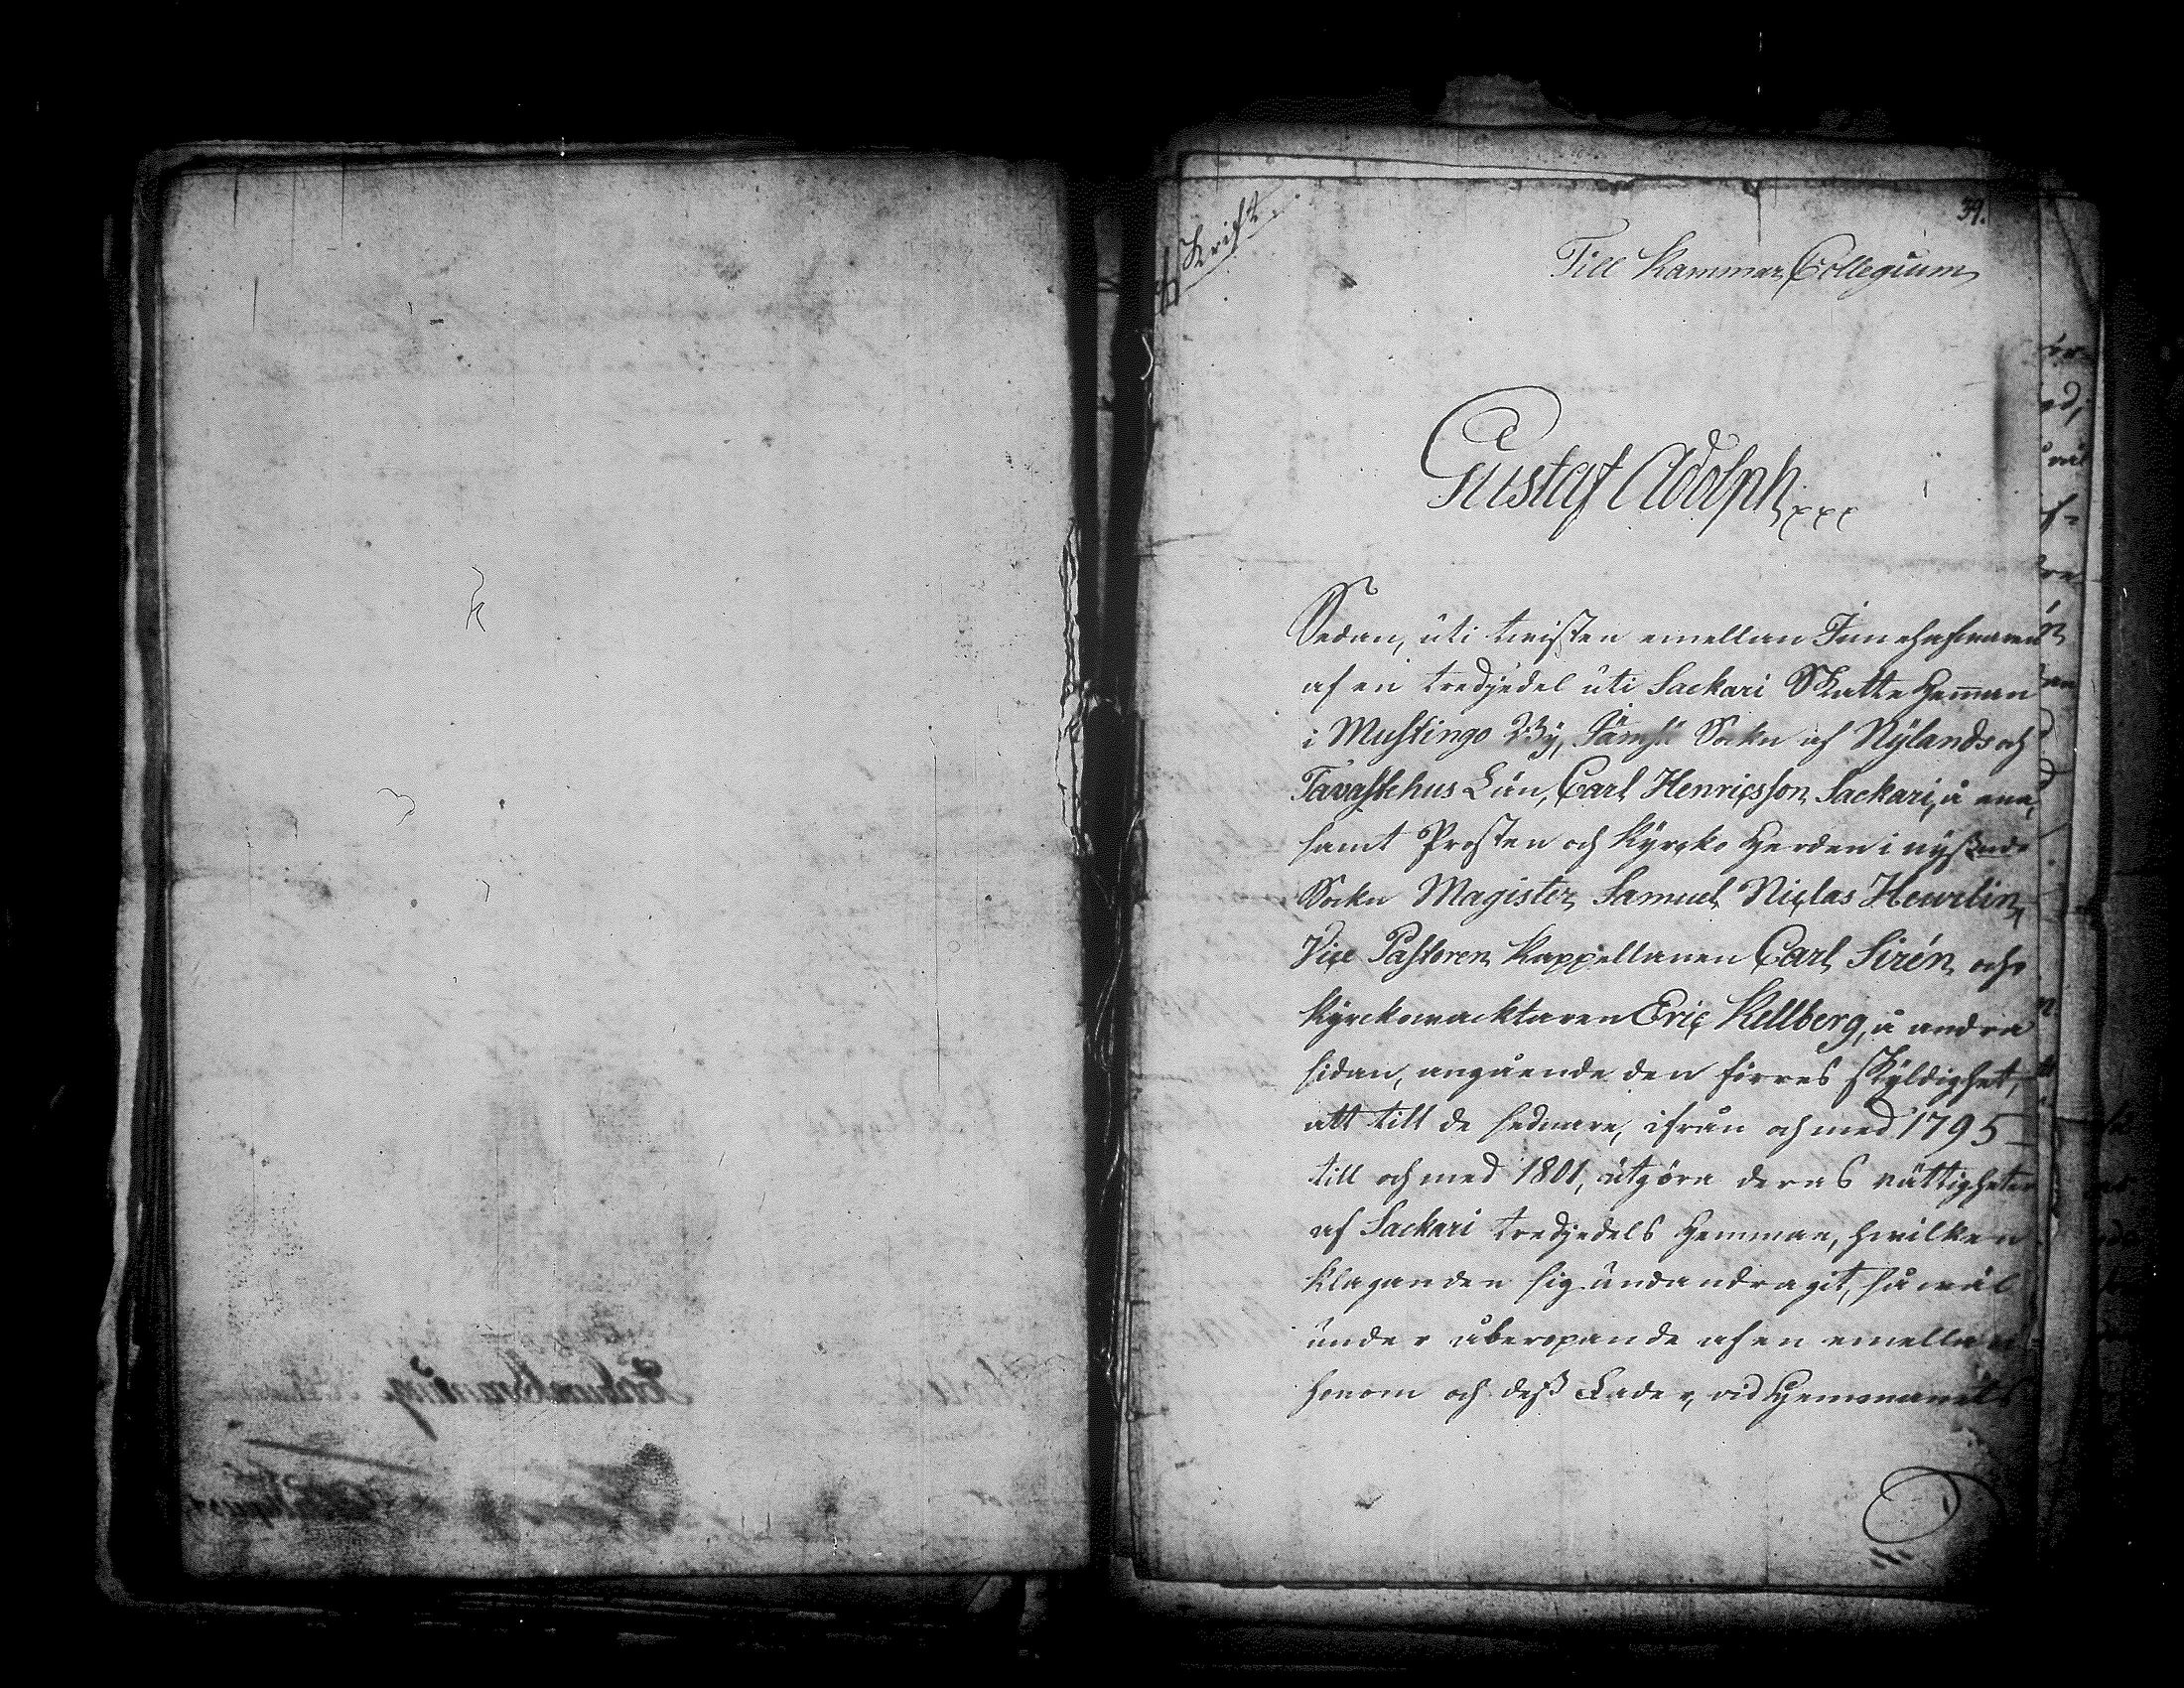 Afskrift.
39.
Till Kammar Collegium
Gustaf Adolph xxx
Sedan, uti twisten emellan Innehafwaren
af en tredjedel uti Sackari Skatte Hemman
i Mustingo By, Jämsä Sokn af Nylands och
Tavastehus Län, Carl Henricsson Sackari, å ena,
samt Prosten och Kyrcko Herden i nyssnde
Sokn Magister Samuel Niclas Hewelin,
Vice Pastoren Kappellanen Carl Sirén och
Kyrckowacktaren Eric Kellberg, å andra
sidan, angående den förres skyldighet,
att till de sednare, ifrån och med 1795
till och med 1801, utgöra deras rättigheter
af Sackari tredjedels Hemman, hwilken
Klaganden sig undandragit, så wäl
under åberopande af en emellan
honom och dess Fader, vid Hemmanets